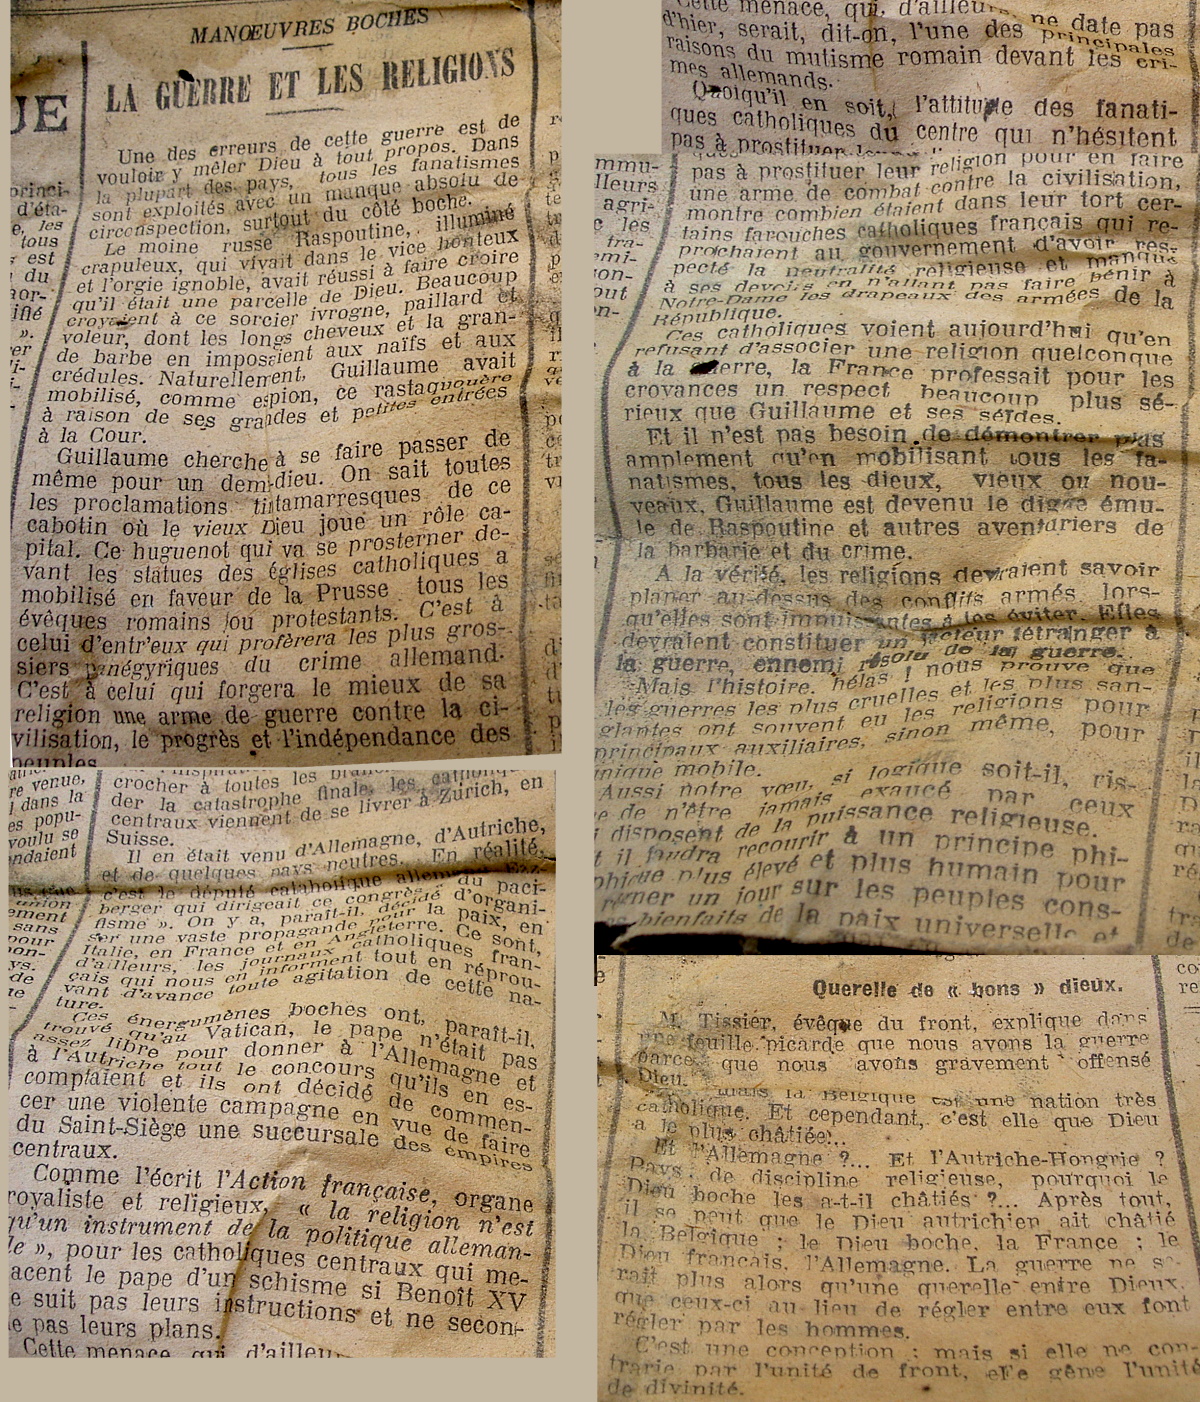 MANŒUVRES BOCHES
LA GUERRE ET LES RELIGIONS
UE
Une des erreurs de cette guerre est de
vouloir y mêler Dieu à tout propos. Dans
la plupart des pays, tous les fanatismes
sont exploités avec un manque absolu de
circonspection, surtout du côté boche.
Le moine russe Raspoutine, illuminé
crapuleux, qui vivait dans le vice honteux
et l'orgie ignoble, avait réussi à faire croire
qu'il était une parcelle de Dieu. Beaucoup
croyaient à ce sorcier ivrogne, paillard et
voleur, dont les longs cheveux et la gran-
de barbe en imposaient aux naïfs et aux
crédules. Naturellement, Guillaume avait
mobilisé, comme espion, ce rastaquouère
à raison de ses grandes et petites entrées
à la Cour.
Guillaume cherche à se faire passer de
même pour un demi-dieu. On sait toutes
les proclamations tintamarresques de ce
cabotin où le vieux Dieu joue un rôle ca-
pital. Ce huguenot qui va se prosterner de-
vant les statues des églises catholiques a
mobilisé en faveur de la Prusse tous les
évêques romains ou protestants. C'est à
celui d'entr'eux qui profèrera les plus gros-
siers panégyriques du crime allemand.
C'est à celui qui forgera le mieux de sa
religion une arme de guerre contre la ci-
vilisation, le progrès et l'indépendance des
peuples.
crocher à toutes les
der la catastrophe finale, les
centraux viennent de se livrer à Zurich, en
Suisse.
Il en était venu d'Allemagne, d'Autriche,
et de quelques pays neutres. En réalité,
c'est le député catholique allemand Erz-
berger qui dirigeait ce congrès du paci-
fisme ». On y a, paraît-il, décidé d'organi-
ser une vaste propagande pour la paix, en
Italie, en France et en Angleterre. Ce sont,
d'ailleurs, les journaux catholiques fran-
çais qui nous en informent tout en réprou-
vant d'avance toute agitation de cette na-
ture.
Ces énergumènes boches ont, paraît-il,
trouvé qu'au Vatican, le pape n'était pas
assez libre pour donner à l'Allemagne et
à l'Autriche tout le concours qu'ils en es-
comptaient et ils ont décidé de commen-
cer une violente campagne en vue de faire
du Saint-Siège une succursale des empires
centraux.
Comme l'écrit l'Action française, organe
royaliste et religieux, « la religion n'est
qu'un instrument de la politique alleman-
de », pour les catholiques centraux qui me-
acent le pape d'un schisme si Benoît XV
e suit pas leurs instructions et ne secon-
e pas leurs plans.
Cette menace, qui, d'ailleurs, ne date pas
d'hier, serait, dit-on, l'une des principales
raisons du mutisme romain devant les cri-
mes allemands.
Quoiqu'il en soit, l'attitude des fanati-
ques catholiques du centre qui n'hésitent
pas à prostituer leur religion pour en faire
une arme de combat contre la civilisation,
montre combien étaient dans leur tort cer-
tains farouches catholiques français qui re-
prochaient au gouvernement d'avoir res-
pecté la neutralité religieuse et manqué
à ses devoirs en n'allant pas faire bénir à
Notre-Dame les drapeaux des armées de la
République.
Ces catholiques voient aujourd'hui qu'en
refusant d'associer une religion quelconque
à la guerre, la France professait pour les
croyances un respect beaucoup plus sé-
rieux que Guillaume et ses séides.
Et il n'est pas besoin de démontrer plus
amplement qu'en mobilisant tous les fa-
natismes, tous les dieux, vieux ou nou-
veaux, Guillaume est devenu le digne ému-
le de Raspoutine et autres aventuriers de
la barbarie et du crime.
A la vérité, les religions devraient savoir
planer au-dessus des conflits armés, lors-
qu'elles sont impuissantes à les éviter. Elles
devraient constituer un facteur étranger à
la guerre, ennemi résolu de la guerre.
Mais l'histoire, hélas ! nous prouve que
les guerres les plus cruelles et les plus san-
glantes ont souvent eu les religions pour
principaux auxiliaires, sinon même, pour
unique mobile.
Aussi notre vœu, si logique soit-il, ris-
e de n'être jamais exaucé par ceux
i disposent de la puissance religieuse.
t il faudra recourir à un principe phi-
phique plus élevé et plus humain pour
gner un jour sur les peuples cons-
es bienfaits de la paix universelle et
Querelle de « bons » dieux.
M. Tissier, évêque du front, explique dans
une feuille picarde que nous avons la guerre
parce que nous avons gravement offensé
Dieu.
mais la Belgique est une nation très
catholique. Et cependant, c'est elle que Dieu
a le plus châtiée...
Et l'Allemagne ?... Et l'Autriche-Hongrie ?
Pays de discipline religieuse, pourquoi le
Dieu boche les a-t-il châtiés ?... Après tout,
il se peut que le Dieu autrichien ait châtié
la Belgique ; le Dieu boche, la France ; le
Dieu français, l'Allemagne. La guerre ne se-
rait plus alors qu'une querelle entre Dieux,
que ceux-ci au lieu de régler entre eux font
régler par les hommes.
C'est une conception ; mais si elle ne con-
trarie par l'unité de front, elle gêne l'unité
de divinité.